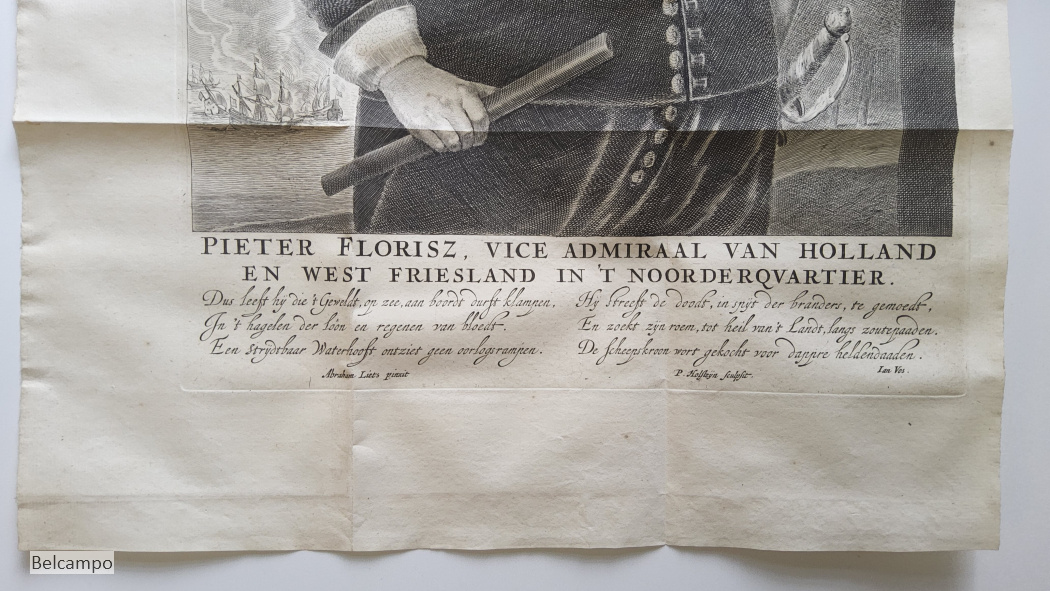 PIETER FLORISZ, VICE ADMIRAAL VAN HOLLAND
EN WEST FRIESLAND IN 'T NOORDERQVARTIER.
Dus leeft hy die 't Geweldt, op zee, aan boordt durft klampen.
In 't hagelen der loôn en regenen van bloedt.
Een Strydtbaar Waterhooft ontziet geen oorlogsrampen.
Hy streeft de doodt, in spyt der branders, te gemoedt,
En zoekt zijn roem, tot heil van 't Landt, langs zoutepaaden.
De scheepskroon wort gekocht voor dappre heldendaaden.
Abraham Liets pinxit
P. Holsteyn sculpsit.
Ian Vos.
Belcampo